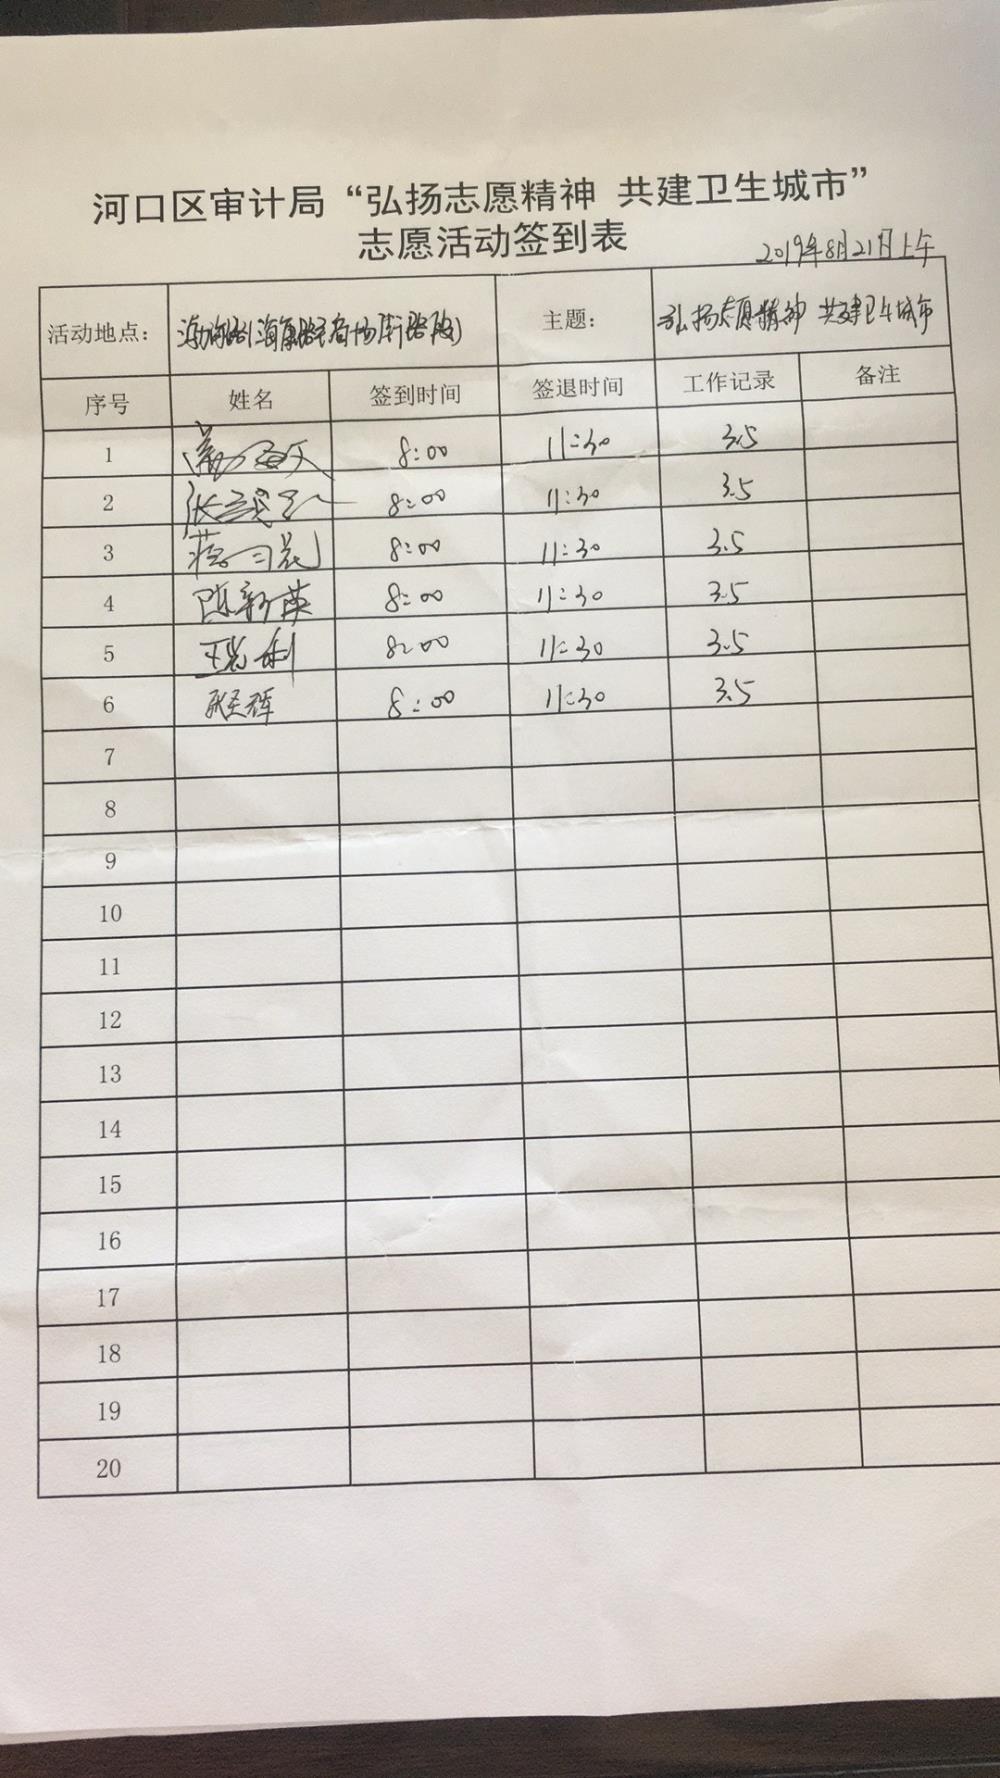 河口区审计局“弘扬志愿精神 共建卫生城市”
志愿活动签到表
2019年8月21日上午
活动地点： 主题： 弘扬志愿精神 共建卫生城市
序号 姓名 签到时间 签退时间 工作记录 备注
1 8:00 11:30 3.5
2 8:00 11:30 3.5
3 8:00 11:30 3.5
4 陈新英 8:00 11:30 3.5
5 8:00 11:30 3.5
6 8:00 11:30 3.5
7
8
9
10
11
12
13
14
15
16
17
18
19
20